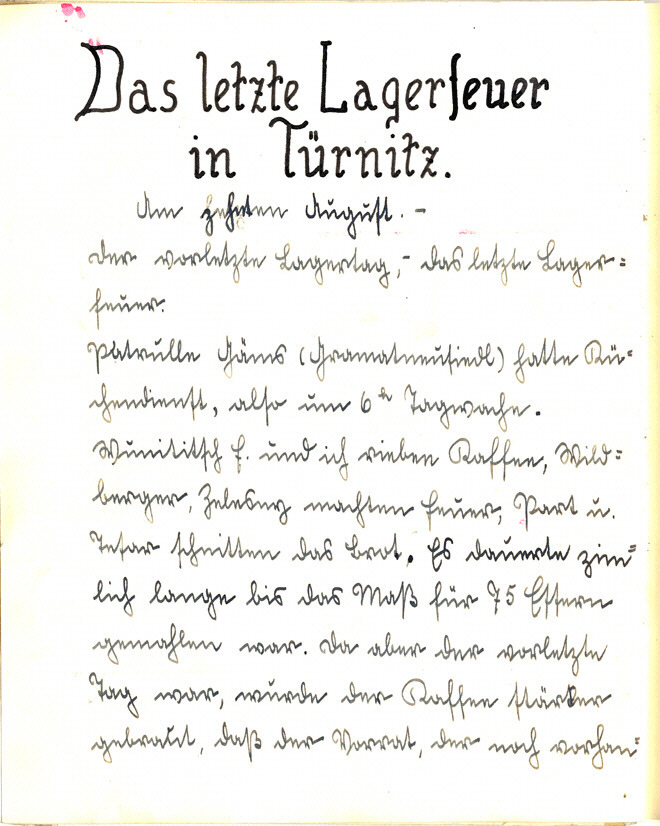 Das letzte Lagerfeuer
in Türnitz.
Am zehnten August. –
Der vorletzte Lagertag, – das letzte Lager=
feuer.
Patrulle Gäms (Gramatneusiedl) hatte Kü=
chendienst, also um 6h Tagwache.
Wunititsch F. und ich rieben Kaffee, Wild=
berger, Zelesny machten Feuer, Part u.
Tesar schnitten das Brot. Es dauerte ziem=
lich lange bis das Maß für 75 Essern
gemahlen war. Da aber der vorletzte
Tag war, wurde der Kaffee stärker
gebraut, daß der Vorrat, der noch vorhan=